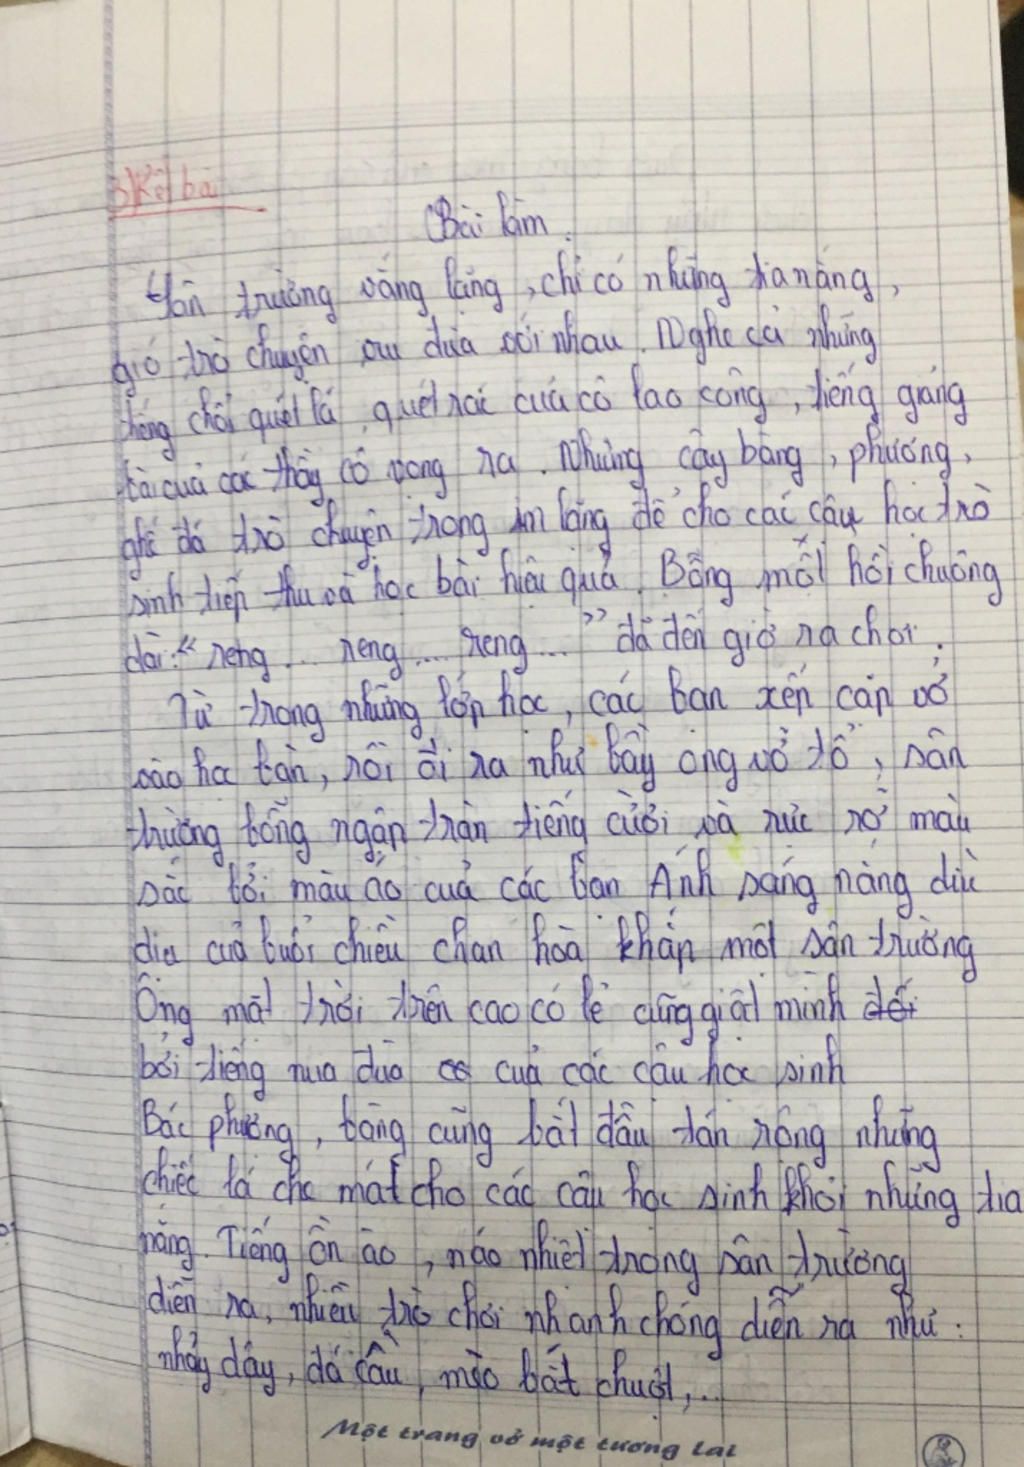 3) Kết bài
Bài làm.
Sân trường vắng lặng, chỉ có những tia nắng,
gió trò chuyện vui đùa với nhau. Nghe cả những
tiếng chổi quét lá, quét rác của cô lao công, tiếng giảng
bài của các thầy cô vọng ra. Những cây bàng, phượng,
ghế đá trò chuyện trong im lặng để cho các cậu học trò
sinh tiếp thu và học bài hiệu quả. Bỗng một hồi chuông
dài: "reng... reng... reng..." đã đến giờ ra chơi.
Từ trong những lớp học, các bạn xếp cặp vở
vào học bàn, rồi ồi ra như bầy ong vỡ tổ, sân
trường bỗng ngập tràn tiếng cười và rực rỡ màu
sắc bởi màu áo của các bạn Ánh sáng nắng dìu
dịu của buổi chiều chan hoà khắp một sân trường
Ông mặt trời trên cao có lẽ cũng giật mình
bởi tiếng nua đùa của các cậu học sinh
Bác phượng, bàng cũng bắt đầu tán rộng những
chiếc lá che mát cho các cậu học sinh khỏi những tia
nắng. Tiếng ồn ào, náo nhiệt trong sân trường
diễn ra, nhiều trò chơi nhanh chóng diễn ra như:
nhảy dây, đá cầu, mèo bắt chuột,...
Một trang vở một tương lai